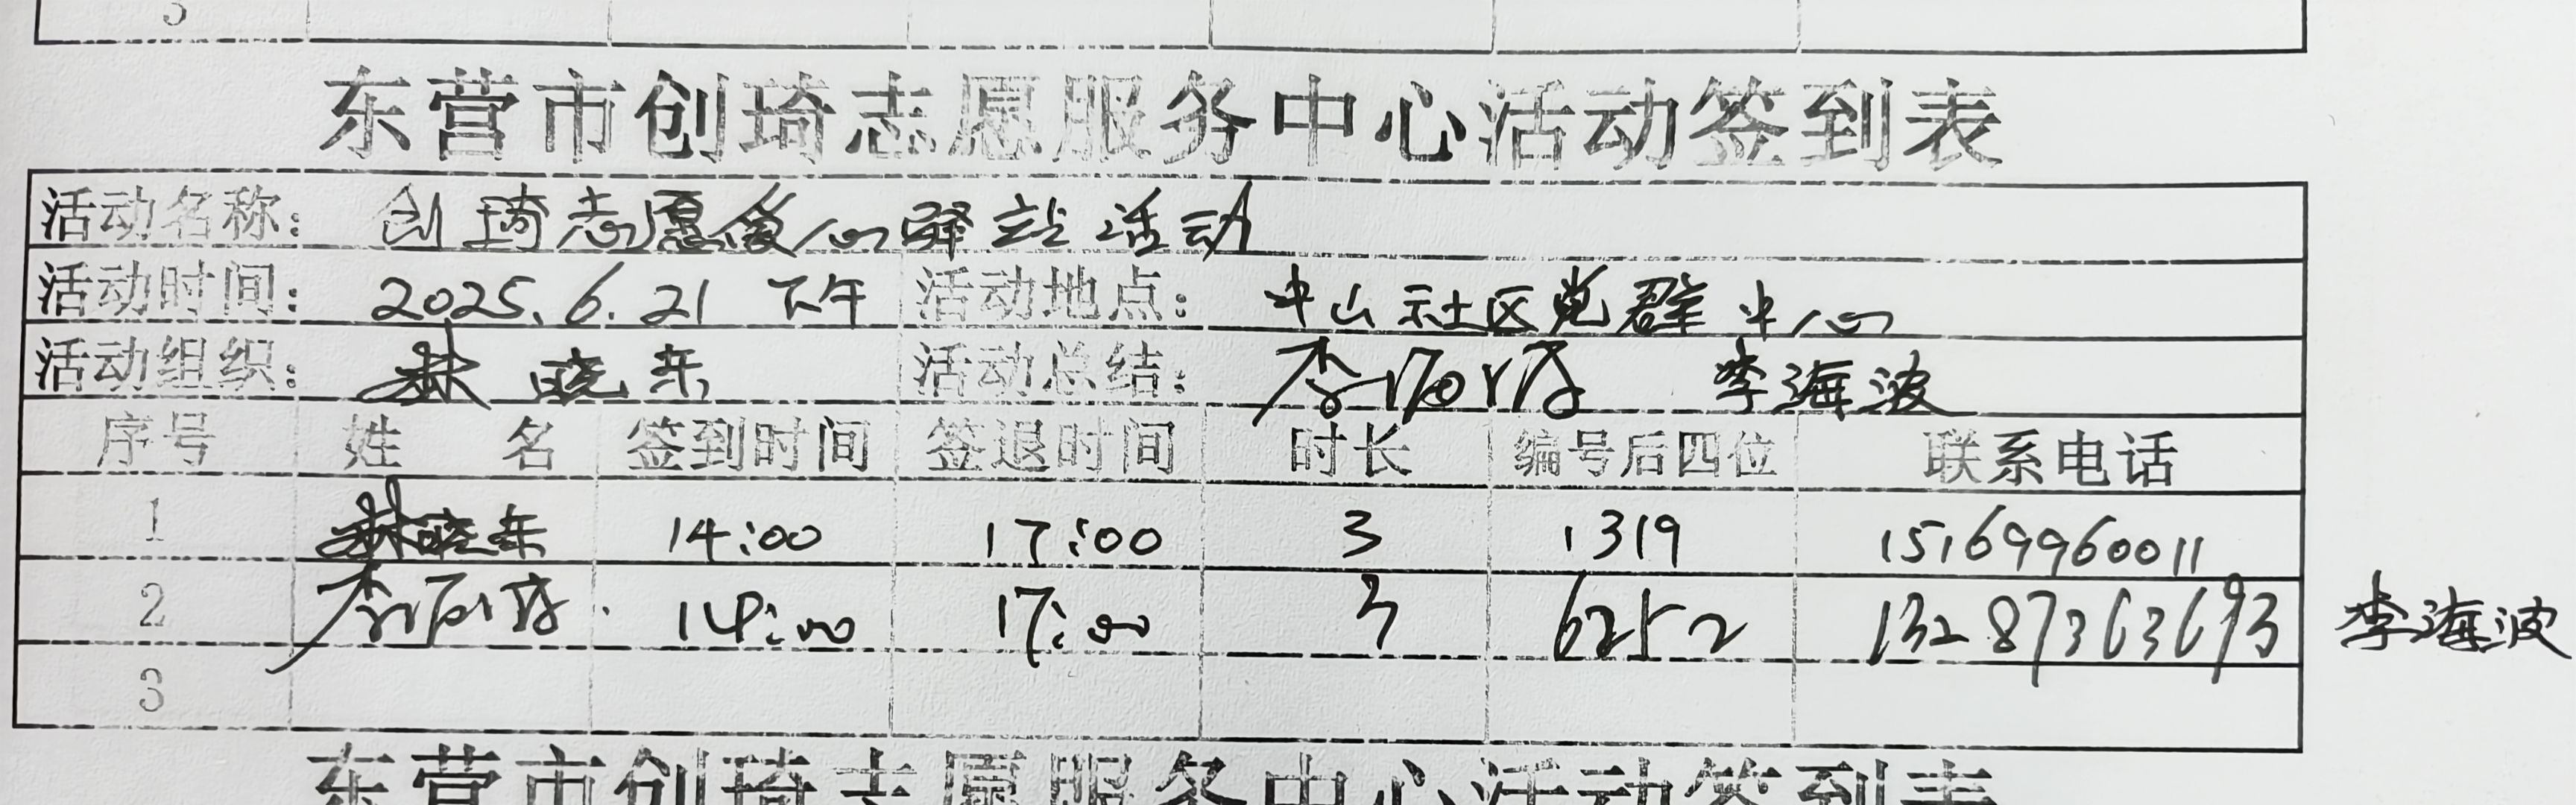 3
东营市创琦志愿服务中心活动签到表
活动名称: 创琦志愿暖心驿站活动
活动时间: 2025.6.21 下午 活动地点: 中山社区党群中心
活动组织: 林晓东 活动总结: 李海波 李海波
序号 姓 名 签到时间 签退时间 时长 编号后四位 联系电话
1 林晓东 14:00 17:00 3 1319 15169960011
2 李海波 14:00 17:00 3 6252 13287363693 李海波
3
东营市创琦志愿服务中心活动签到表